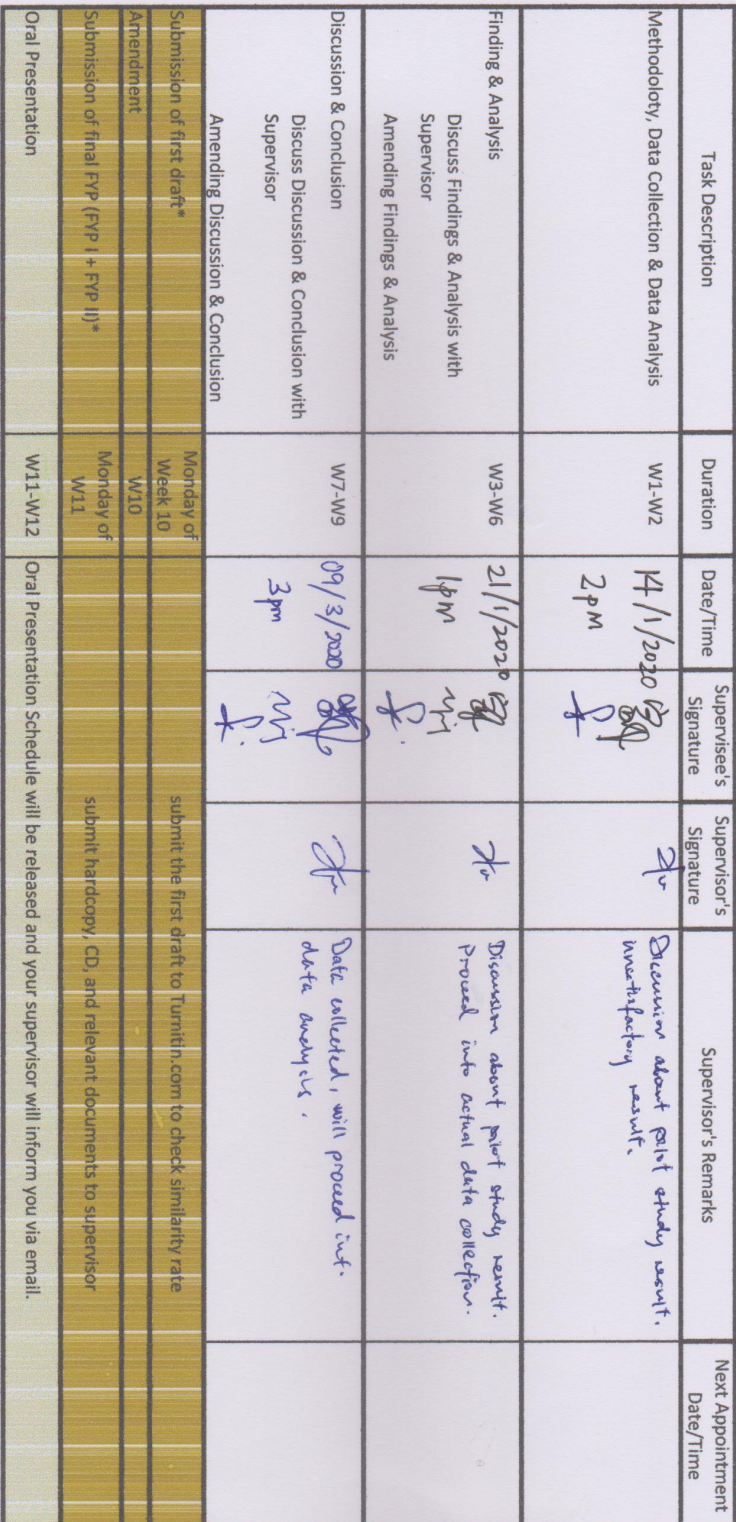 Task Description
Duration
Date/Time
Supervisee's
Signature
Supervisor's
Signature
Supervisor's Remarks
Next Appointment
Date/Time
Methodoloty, Data Collection & Data Analysis
W1-W2
14/1/2020
2pm
Discussion about pilot study result.
unsatisfactory result.
Finding & Analysis
Discuss Findings & Analysis with
Supervisor
Amending Findings & Analysis
W3-W6
21/1/2020
1pm
Discussion about pilot study result.
Proceed into actual data collection.
Discussion & Conclusion
Discuss Discussion & Conclusion with
Supervisor
Amending Discussion & Conclusion
W7-W9
09/3/2020
3pm
Data collected, will proceed int.
data analysis.
Submission of first draft*
Monday of
Week 10
submit the first draft to Turnitin.com to check similarity rate
Amendment
W10
Submission of final FYP (FYP I + FYP II)*
Monday of
W11
submit hardcopy, CD, and relevant documents to supervisor
Oral Presentation
W11-W12
Oral Presentation Schedule will be released and your supervisor will inform you via email.